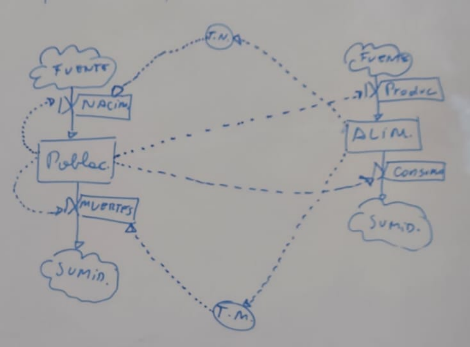 T.N.
FUENTE
NACIM.
Poblac.
MUERTES
SUMID.
FUENTE
Produc
ALIM.
Consum
SUMID.
T.M.